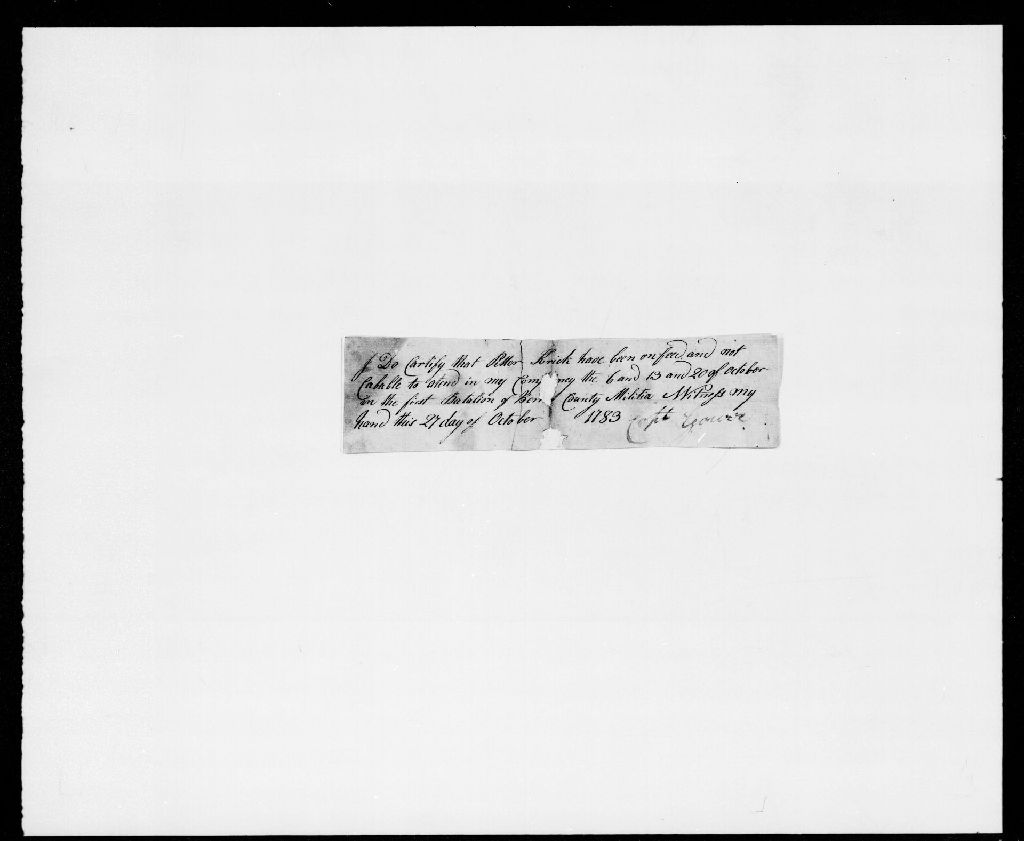 J Do Certify that Petter Krick have been on feed and not
Cabable to atend in my Company the 6 and 13 and 20 of october
in the first Batalion of Ber County Militia Witness my
hand this 27 day of October 1783 Capt